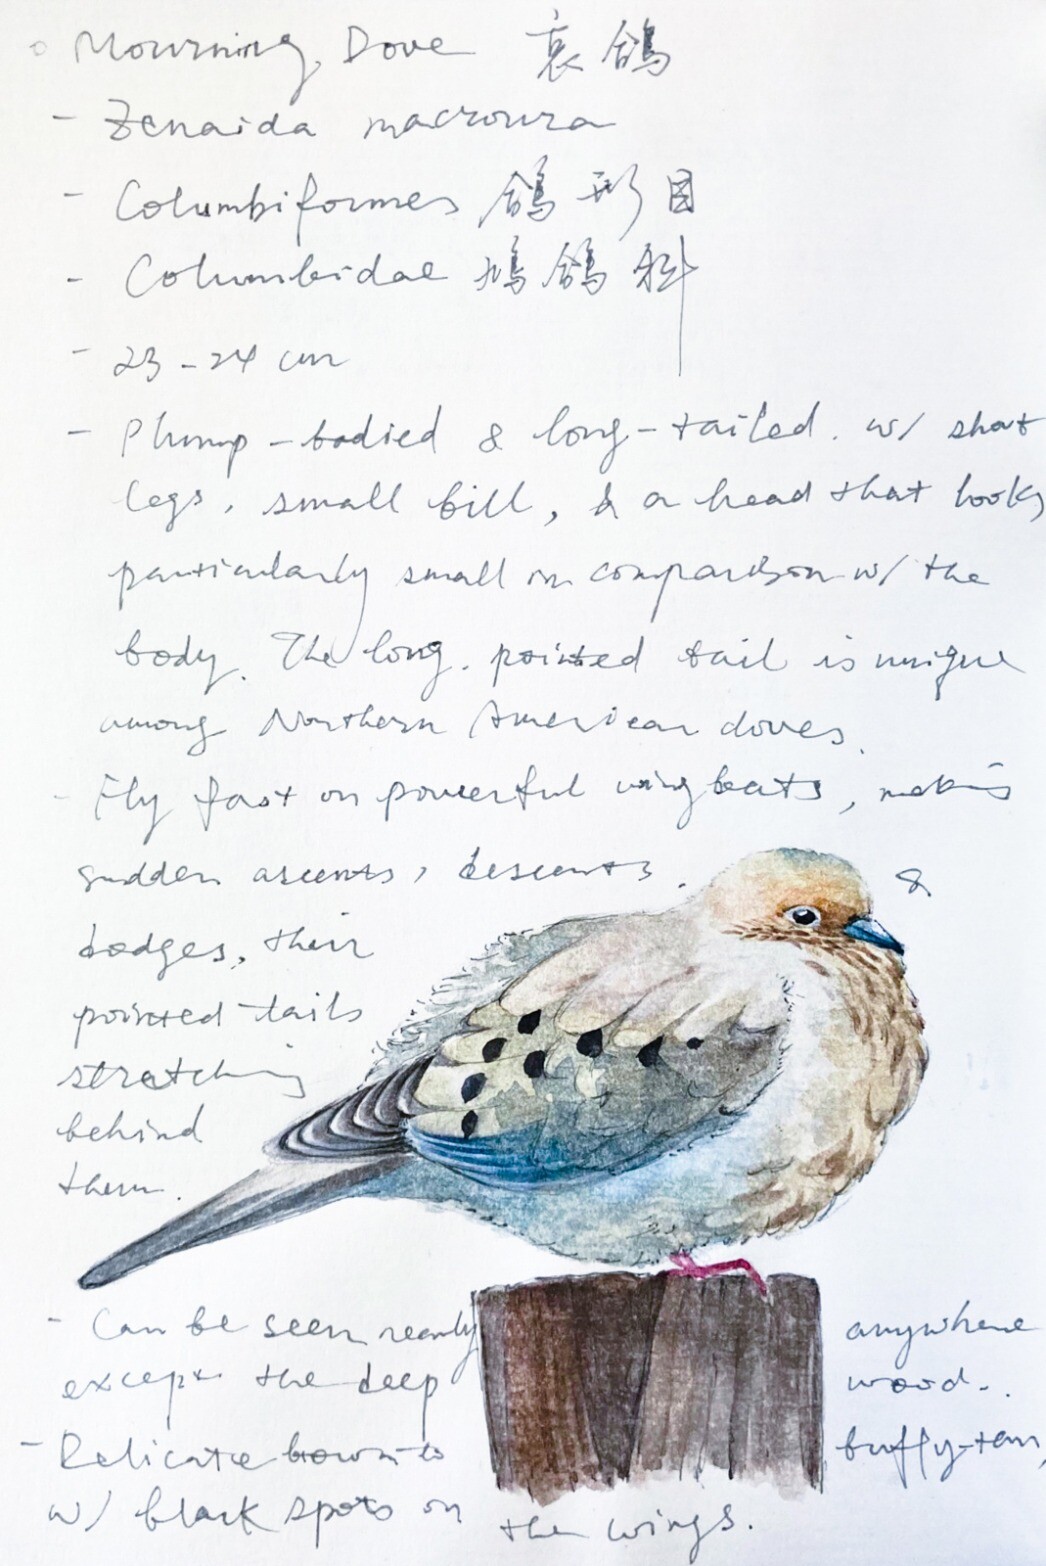 Mourning Dove 哀鴿
- Zenaida macroura
- Columbiformes 鴿形目
- Columbidae 鳩鴿科
- 23-24 cm
- Plump-bodied & long-tailed. w/ short
legs, small bill, & a head that looks
particularly small in comparison w/ the
body. The long. pointed tail is unique
among Northern American doves.
- Fly fast on powerful wingbeats, making
sudden ascents, descents. &
dodges, their
pointed tails
stretching
behind
them.
- Can be seen nearly anywhere
except the deep wood.
- Delicate brown to buffy-tan,
w/ black spots on the wings.